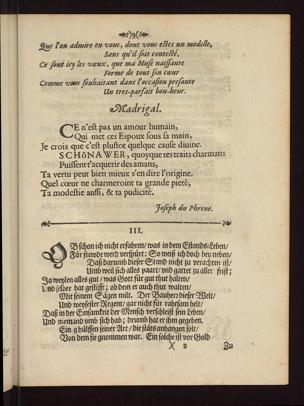 Que l'on admire en vous, dont vous estes un modelle,
Sans qu'il soit contesté.
Ce sont icy les vœux, que ma Muse naissante
Forme de tout son cœur
Comme vous souhaitant dans l'occasion presante
Un tres-parfait bon-heur.
Madrigal.
CE n'est pas un amour humain,
Qui met ces Espoux sous la main,
Je crois que c'est plustot quelque cause divine.
SCHöNAWER, quoyque tes traits charmans
Puissent t'acquerir des amans,
Ta vertu peut bien mieux s'en dire l'origine.
Quel cœur ne charmeroint ta grande pieté,
Ta modestie aussi, & ta pudicité.
Joseph du Phrene.
III.
OB schon ich nicht erfahren/ was in dem Estands-Leben/
Für freunde werd verspürt: So weiß ich doch bey neben/
Daß darumb dieser Stand nicht zu verachten ist/
Umb weil sich alles paart/ und gattet zu aller frist;
Ja weylen alles gut/ was Gott für gut thut halten/
Und selber hat gestifft; ob dem er auch thut walten/
Mit seinem Sägen milt. Der Bauherr dieser Welt/
Und weysester Regent/ gar nicht für rahtsam helt/
Daß in der Einsamkeit der Mensch verschleißt sein Leben/
Und niemand umb sich hab; drumb hat er ihm gegeben.
Ein ghülffen seiner Art/ die stäts anhangen solt/
Von dem sie gnommen war. Ein solche ist vor Gold
X v Zu